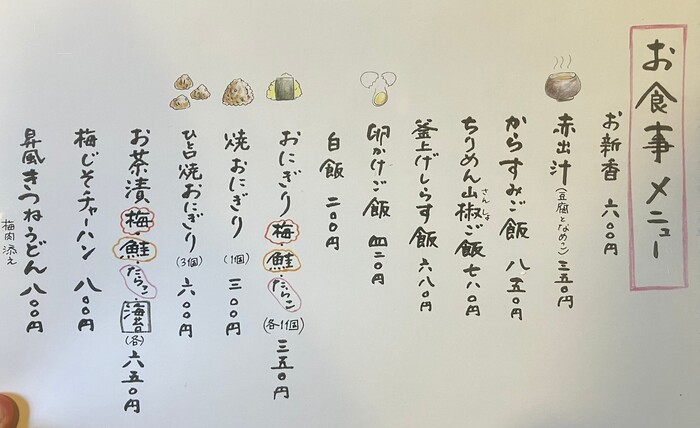 お食事メニュー
お新香 六〇〇円
赤出汁(豆腐となめこ) 三五〇円
からすみご飯 八五〇円
ちりめん山椒ご飯 七八〇円
さんしょ
釜上げしらす飯 六八〇円
卵かけご飯 四二〇円
白飯 二〇〇円
おにぎり 梅・鮭・たらこ (各1個) 三五〇円
焼おにぎり (1個) 三〇〇円
ひと口焼おにぎり (3個) 六〇〇円
お茶漬 梅・鮭・たらこ・海苔 (各) 六五〇円
梅じそチャーハン 八〇〇円
昇風きつねうどん 八〇〇円
梅肉添え